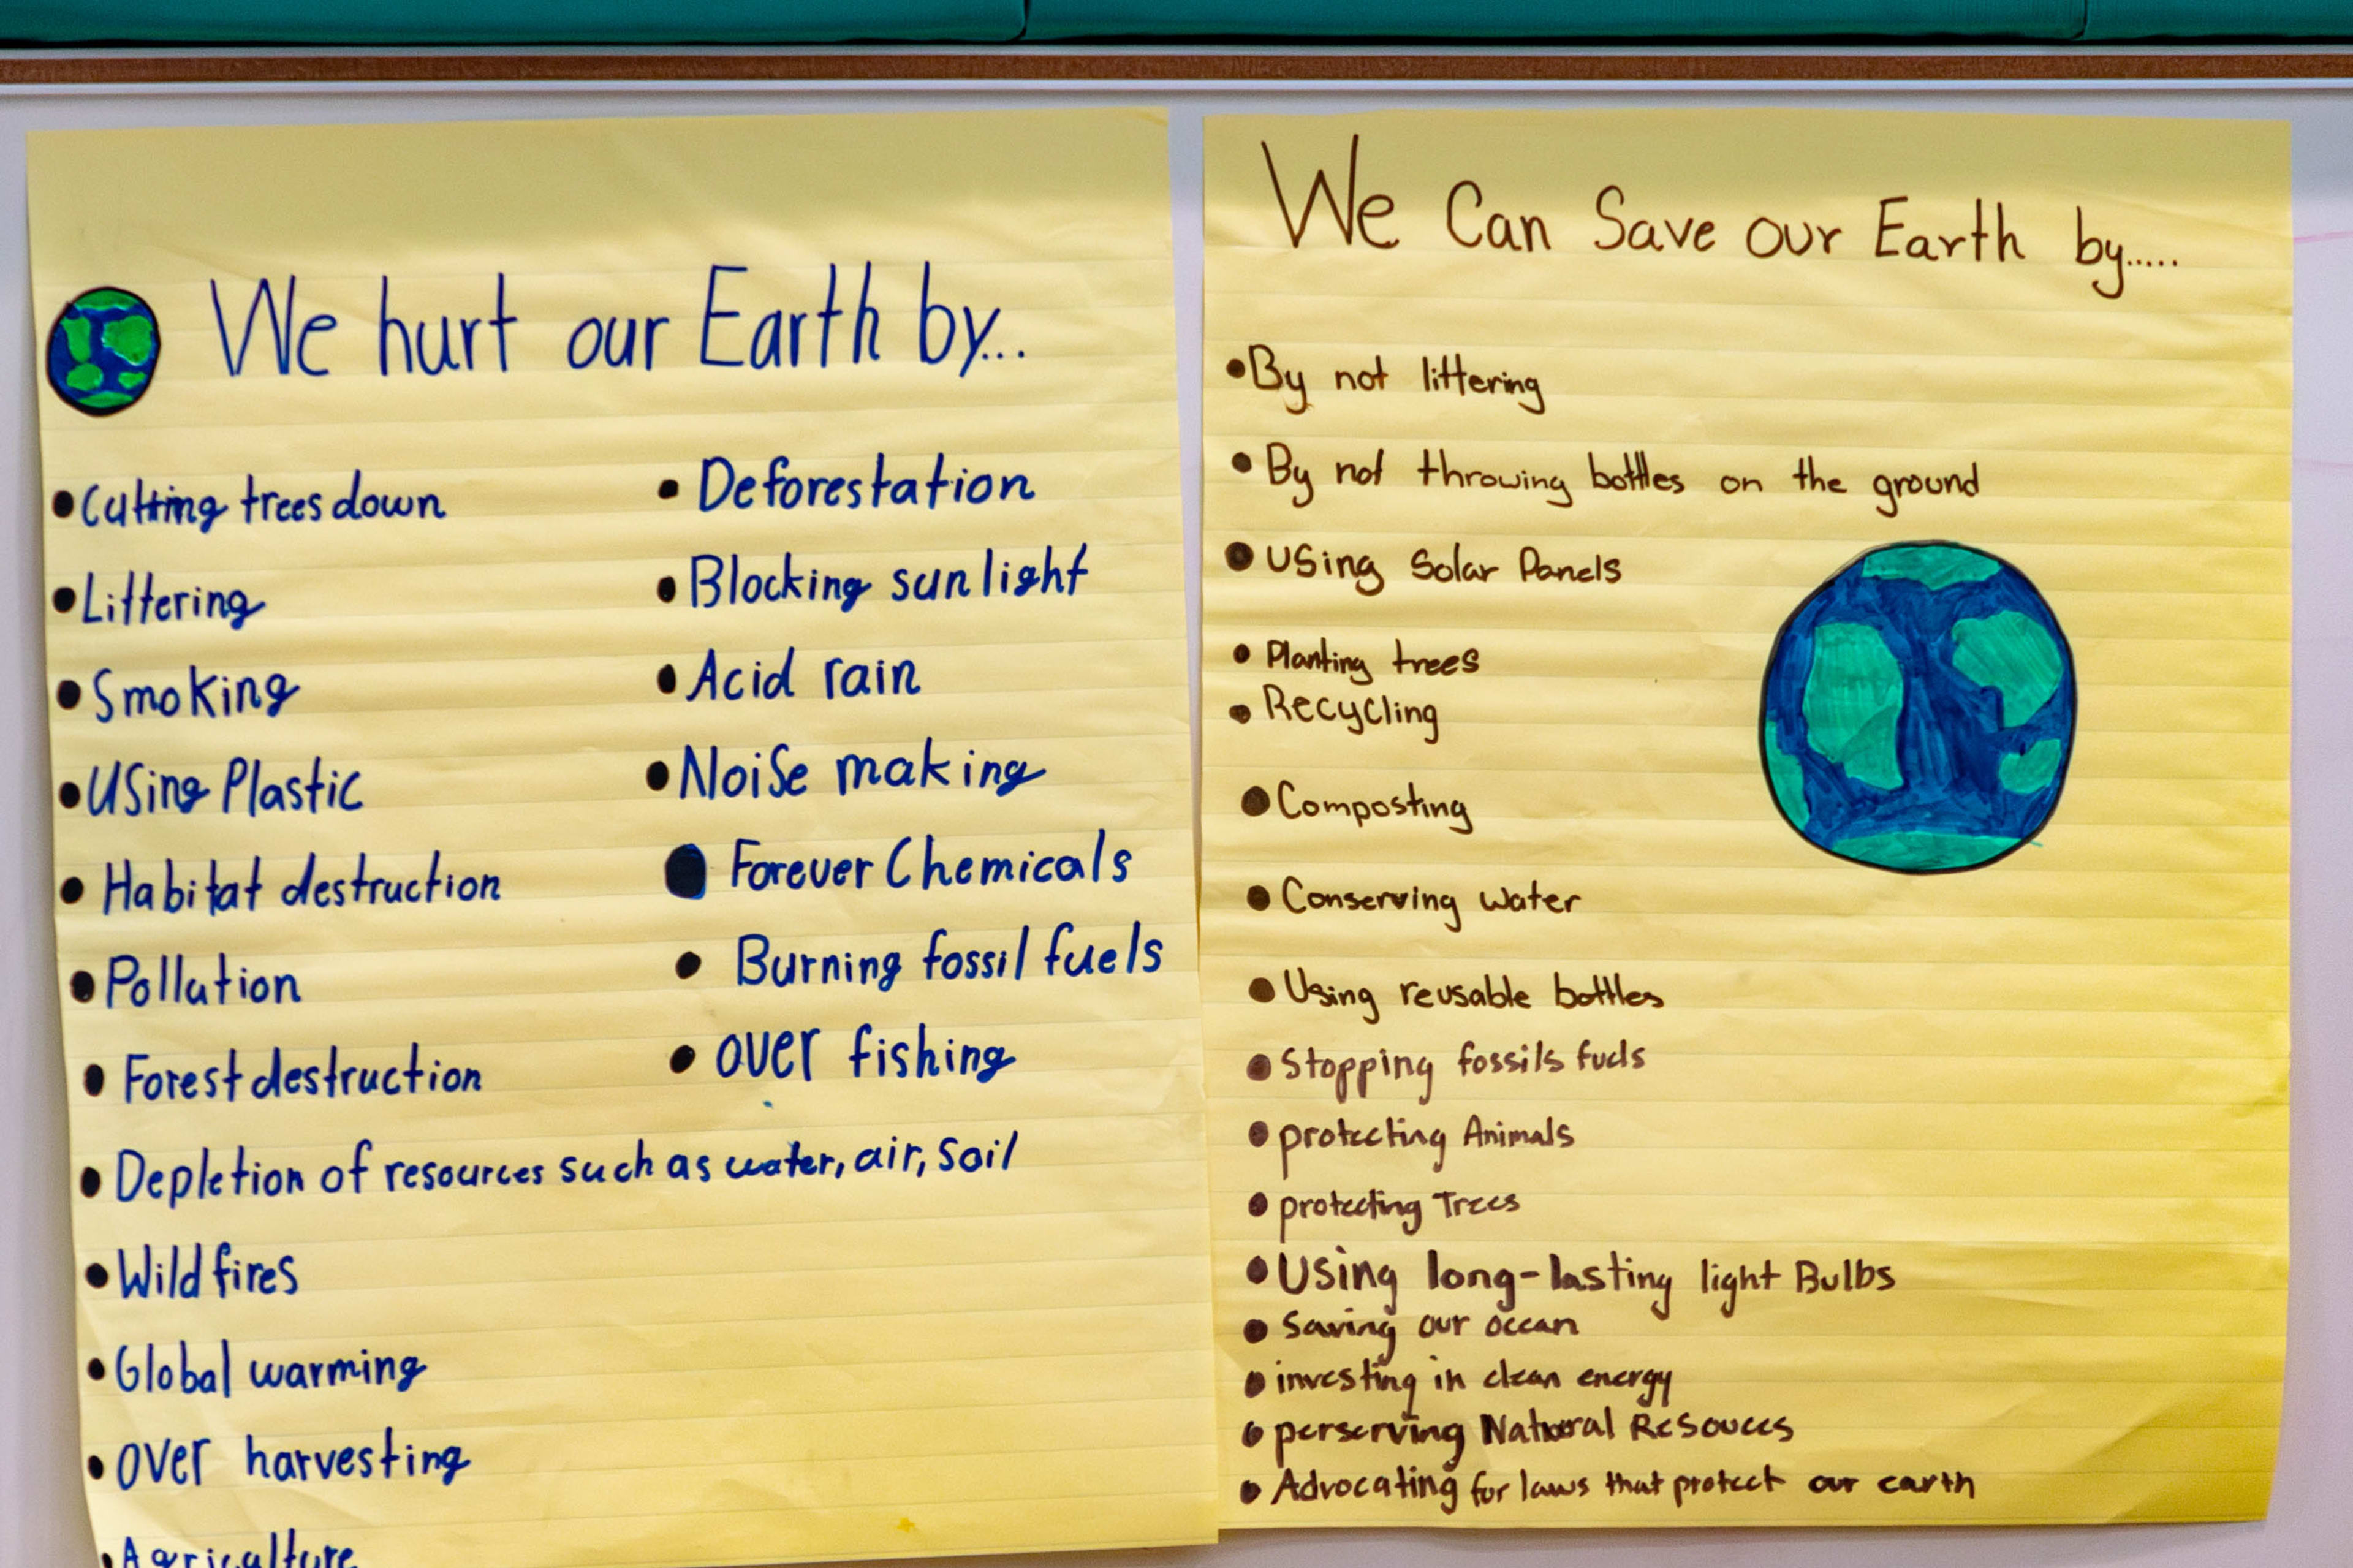 We hurt our Earth by...
• Cutting trees down
• Littering
• Smoking
• Using Plastic
• Habitat destruction
• Pollution
• Forest destruction
• Depletion of resources such as water, air, soil
• Wild fires
• Global warming
• over harvesting
• Agriculture
• Deforestation
• Blocking sun light
• Acid rain
• Noise making
• Forever Chemicals
• Burning fossil fuels
• over fishing
We Can Save our Earth by.....
• By not littering
• By not throwing bottles on the ground
• Using Solar Panels
• Planting trees
• Recycling
• Composting
• Conserving water
• Using reusable bottles
• Stopping fossils fuels
• protecting Animals
• protecting Trees
• Using long-lasting light Bulbs
• Saving our ocean
• investing in clean energy
• perserving Natural Resouces
• Advocating for laws that protect our earth